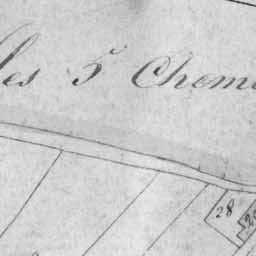 les 5 Chem
28